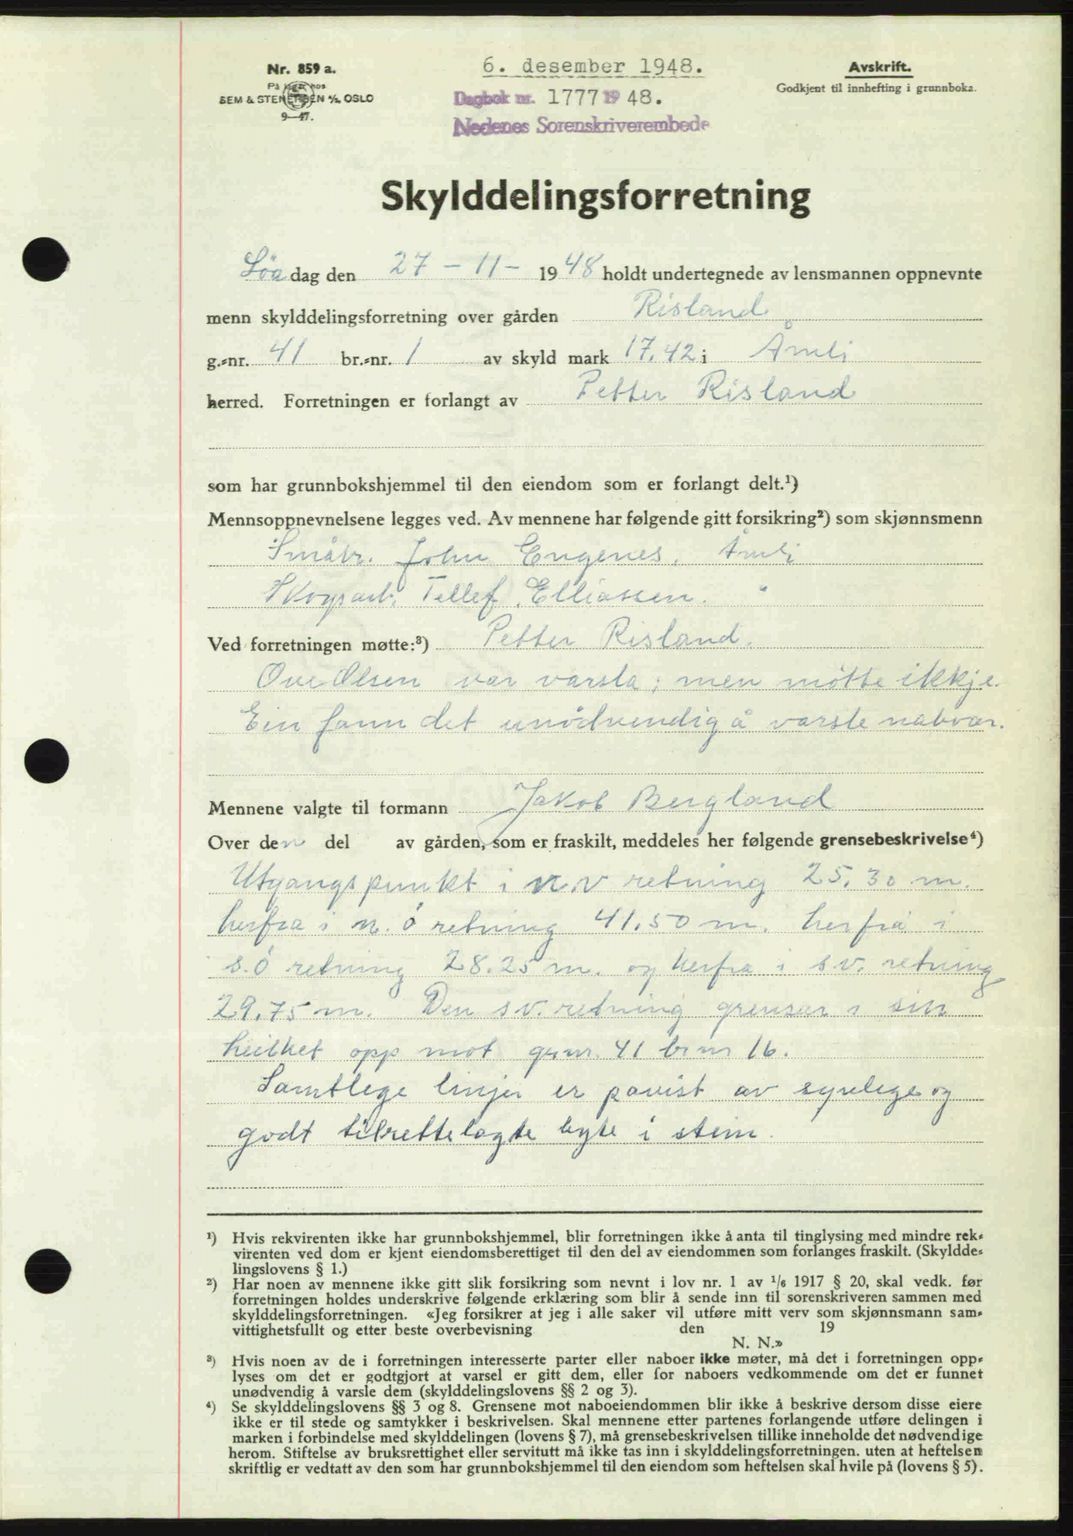 Nr. 859 a.
På lager hos
SEM & STENERSEN A/S, OSLO
9—47.
6. desember 1948.
Dagbok nr. 1777 19 48.
Nedenes Sorenskriverembede
Avskrift.
Godkjent til innhefting i grunnboka.
Skylddelingsforretning
Löadag den 27 - 11 - 1948 holdt undertegnede av lensmannen oppnevnte
menn skylddelingsforretning over gården Risland
g.=nr. 41 br.=nr. 1 av skyld mark 17.42 i Åmli
herred. Forretningen er forlangt av Petter Risland
som har grunnbokshjemmel til den eiendom som er forlangt delt.¹)
Mennsoppnevnelsene legges ved. Av mennene har følgende gitt forsikring²) som skjønnsmenn
Småbr. John Engenes, Åmli
Skogsarb. Tellef Elliassen. "
Ved forretningen møtte:³) Petter Risland.
Ove Olsen var varsla; men møtte ikkje.
Ein fann det unödvendig å varsle naboar.
Mennene valgte til formann Jakob Bergland
Over den del av gården, som er fraskilt, meddeles her følgende grensebeskrivelse⁴)
Utgangspunkt i n.v retning 25.30 m.
herfra i n. ö retning 41.50 m. herfra i
s.ö retning 28.25 m. og herfra i s.v. retning
29.75 m. Den s.v. retning grensar i sin
heilhet opp mot gr.nr. 41 br.nr 16.
Samtlege linjer er påvist av synlege og
godt tilrettelagte byte i stein.
¹) Hvis rekvirenten ikke har grunnbokshjemmel, blir forretningen ikke å anta til tinglysing med mindre rek=
virenten ved dom er kjent eiendomsberettiget til den del av eiendommen som forlanges fraskilt. (Skyldde=
lingslovens § 1.)
²) Har noen av mennene ikke gitt slik forsikring som nevnt i lov nr. 1 av ¹/₆ 1917 § 20, skal vedk. før
forretningen holdes underskrive følgende erklæring som blir å sende inn til sorenskriveren sammen med
skylddelingsforretningen. «Jeg forsikrer at jeg i alle saker vil utføre mitt verv som skjønnsmann sam=
vittighetsfullt og etter beste overbevisning den 19
N. N.»
³) Hvis noen av de i forretningen interesserte parter eller naboer ikke møter, må det i forretningen opp=
lyses om det er godtgjort at varsel er gitt dem, eller for naboers vedkommende om det er funnet
unødvendig å varsle dem (skylddelingslovens §§ 2 og 3).
⁴) Se skylddelingslovens §§ 3 og 8. Grensene mot naboeiendommen blir ikke å beskrive dersom disse eiere
ikke er til stede og samtykker i beskrivelsen. Skal mennene etter partenes forlangende utføre delingen i
marken i forbindelse med skylddelingen (lovens § 7), må grensebeskrivelsen tillike inneholde det nødvendige
herom. Stiftelse av bruksrettighet eller servitutt må ikke tas inn i skylddelingsforretningen. uten at heftelsen
skriftlig er vedtatt av den som har grunnbokshjemmel til den eiendom som heftelsen skal hvile på (lovens § 5).